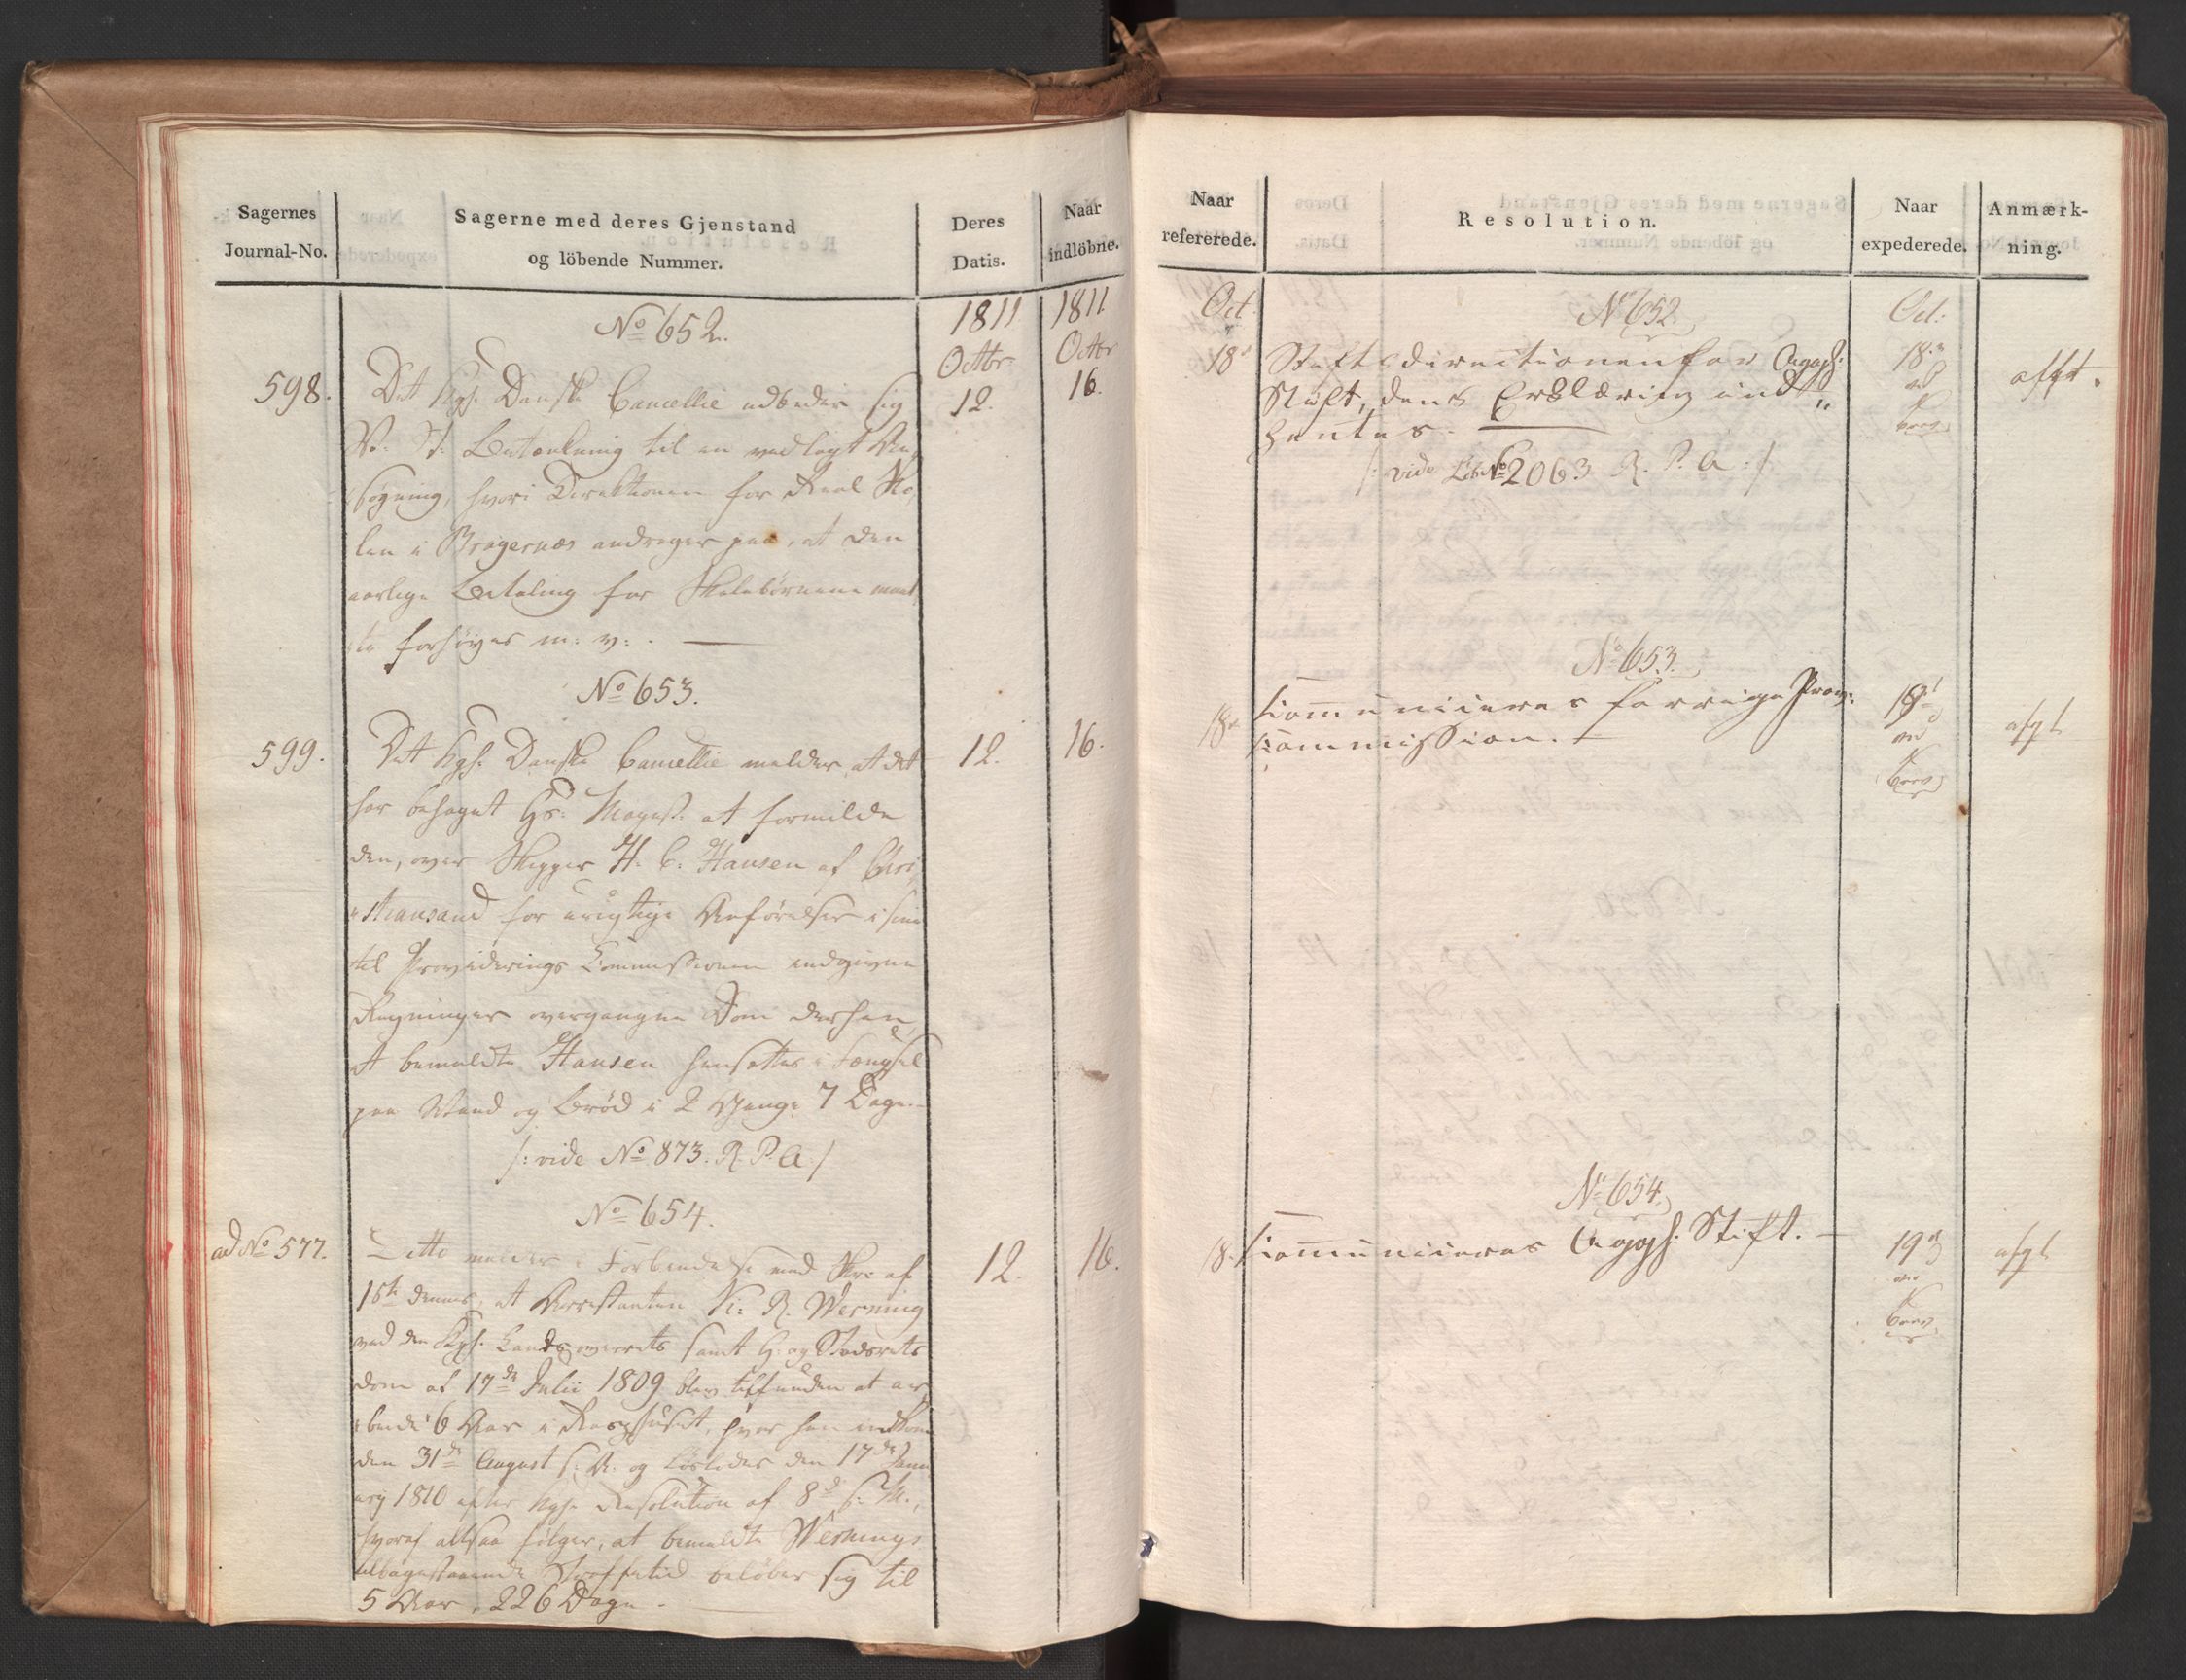 Sagernes
Journal-No.
Sagerne med deres Gjenstand
og löbende Nummer.
Deres
Datis.
Naar
indlöbne.
1811
Octbr
1811.
Octbr
No 652.
598.
Det Kgl. Danske Cancellie udbeder sig
12.
16.
V. St. Betænkning til en vedlagt An,
søgning, hvori Direktionen for Real Sko,
len i Bragernæs andrager paa, at den
aarlige Betaling for Skolebørnene maat,
te forhøies m: v: . —
No 653.
599.
Det Kgl. Danske Cancellie melder, at det
12.
16.
har behaget Hs: Majest. at formilde
den, over Skipper H. C. Hansen af Chri,
stiansand for urigtige Anførelser i sine
til Providerings Commissionen indgivne
Regninger overgangne Dom derhen,
at bemeldte Hansen hensættes i Fængsel
paa Vand og Brød i 2 Gange 7 Dage. —
/: vide No 873. R. P. A :/
No 654.
ad No 577.
Ditto melder i Forbindelse med Skr: af
12.
16.
15de dennes, at Arrestanten Ni: R. Werning
ved den Kgl. Landsoverrets samt H. og Stadsrets
Dom af 17de Julii 1809 blev tilfunden at ar,
beide 6 Aar i Rasphuset, hvor han indkom
den 31de August s: A. og løslodes den 17de Janu
arj 1810 efter Kgl. Resolution af 8de s: M.,
hvoraf altsaa følger, at bemeldte Wernings
tilbagestaaende Straffetid beløber sig til
5 Aar, 226 Dage. —
Naar
refererede.
Resolution.
Naar
expederede.
Anmærk-
ning.
Oct
No 652.
Oct:
18
Stiftsdirectionen for Aggh:
18.
afgt.
Stift, dens Erklæring ind„
hentes. —
/: vide Lb No 2063 R. P. A :/
No 653.
18
Communiceres forrige Prov:
19
afgt
Commission. —
No 654.
18.
Communiceres Aggh: Stift. —
19
afgt